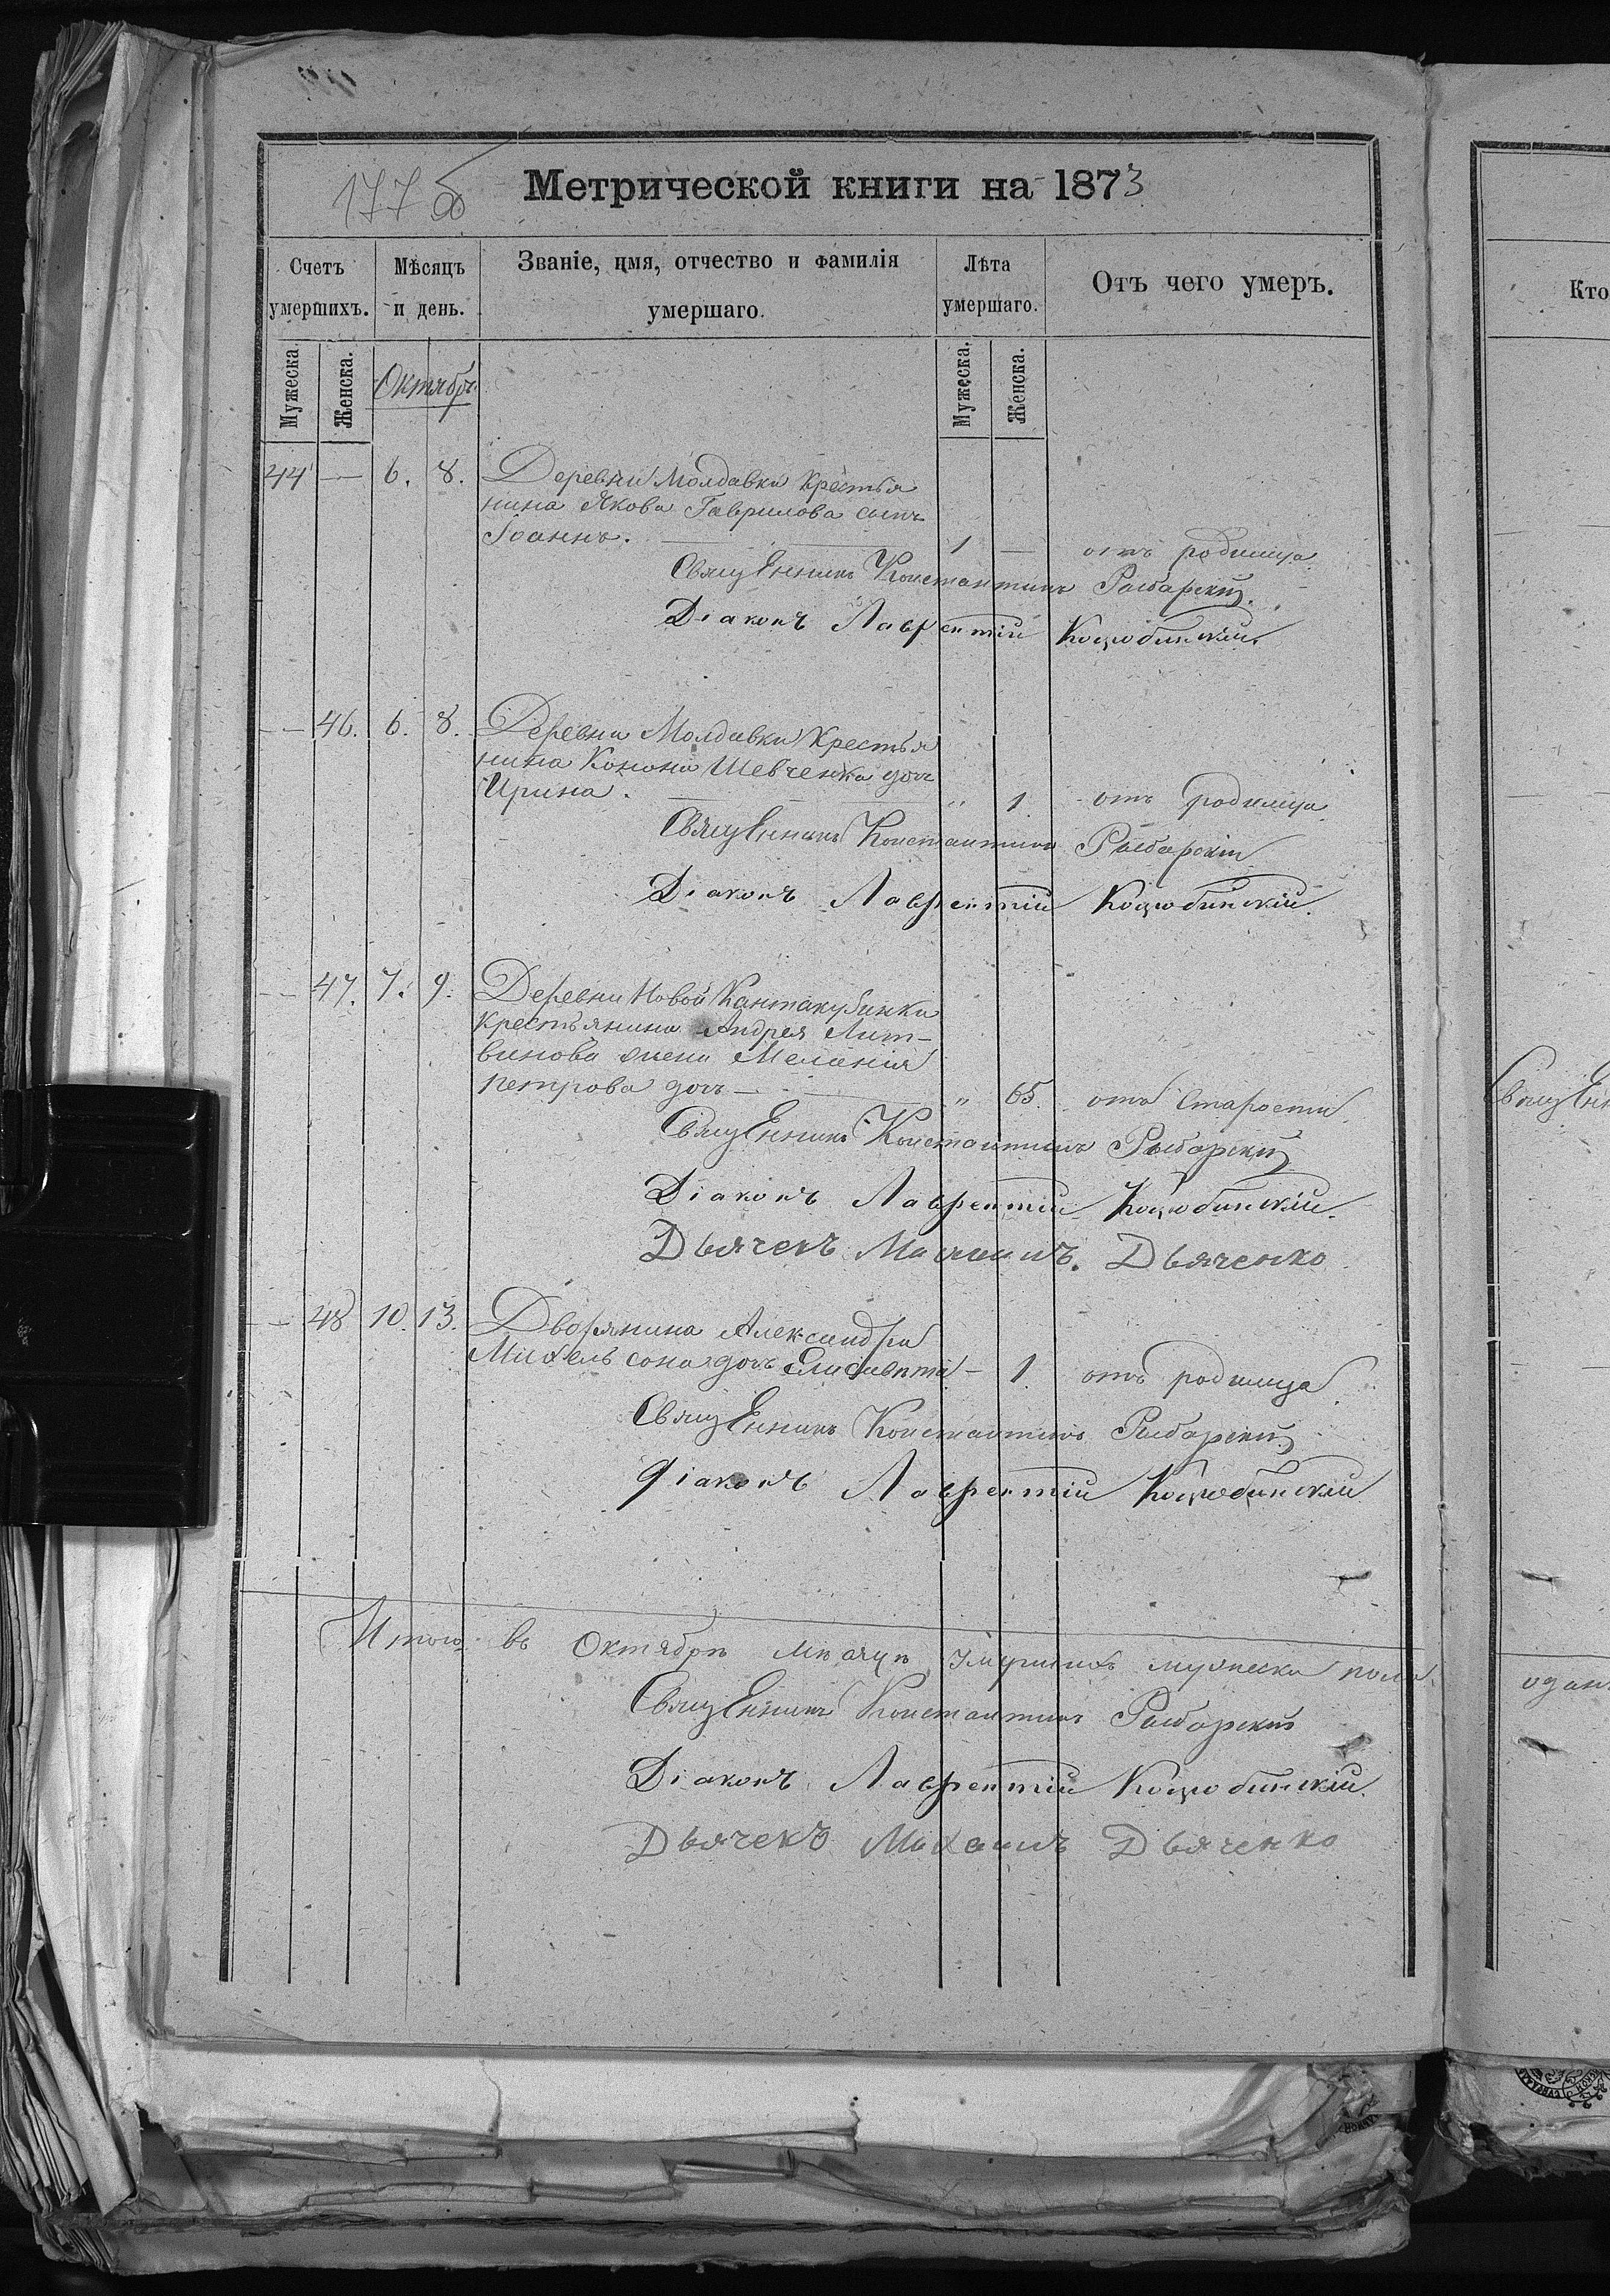 177 об
Метрической книги на 1873
Счетъ умершихъ. Мѣсяцъ и день. Званіе, имя, отчество и фамилія умершаго. Лѣта умершаго. Отъ чего умеръ.
Мужеска. Женска. Октябрь Мужеска. Женска.
44 — 6. 8. Деревни Молдавки крестья
нина Якова Гаврилова сынъ
Іоаннъ. — 1 — отъ родимца
Священникъ Константинъ Рыбарскій.
Діаконъ Лаврентій Коцюбинскій.
— 46. 6. 8. Деревни Молдавки Крестья
нина Конона Шевченка дочь
Ирина. — " 1. отъ родимца
Священникъ Константинъ Рыбарскій
Діаконъ Лаврентій Коцюбинскій.
— 47. 7. 9. Деревни Новой Кантакузинки
крестьянина Андрея Лит-
винова жена Меланія
петрова дочь — " 65. отъ Старости
Священникъ Константинъ Рыбарскій
Діаконъ Лаврентій Коцюбинскій.
Дьячекъ Михаилъ. Дьяченко
— 48 10. 13. Дворянина Александра
Михельсона дочь Елисавета — 1. отъ родимца
Священникъ Константинъ Рыбарскій
Діаконъ Лаврентій Коцюбинскій
Итого въ Октябрѣ мѣсяцѣ умершихъ мужеска пола
Священникъ Константинъ Рыбарскій
Діаконъ Лаврентій Коцюбинскій.
Дьячекъ Михаилъ Дьяченко
Кто